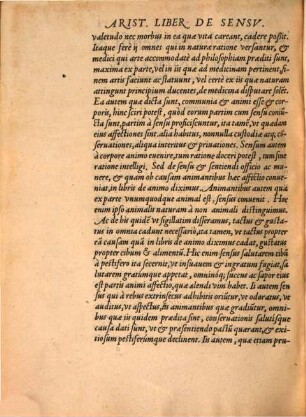 ARIST. LIBER DE SENSV.
valetudo nec morbus in ea quæ vita careant, cadere possit.
Itaque ferè ij omnes qui in naturæ ratione versantur, &
medici qui arte accommodatè ad philosophiam præditi sunt,
maxima ex parte, vel in iis quæ ad medicinam pertinent, fi-
nem artis faciunt ac statuunt, vel certè ex iis quæ naturam
attingunt principium ducentes, de medicina disputare solēt.
Ea autem quæ dicta sunt, communia & animi esse & cor-
poris, hinc sciri potest, quòd eorum partim cum sensu con-
cta sunt, partim à sensu proficiscuntur, ita tamen, vt quædam
eius affectiones sint, alia habitus, nonnulla custodiæ acq; cō-
seruationes, aliqua interitus & priuationes. Sensum autem
à corpore animo euenire, tum ratione doceri potest, tum sine
ratione intelligi. Sed de sensu & sentiendi officio ac mu-
nere, & quam ob causam animantibus hæc affectio conue-
niat, in libris de animo diximus. Animantibus autem quà
ex parte vnumquodque animal est, sensus conuenit. Hoc
enim ipso animalis naturam à non animali distinguimus.
Ac de his quidē vt sigillatim disseramus, tactus & gustus
in omnia cadunt necessariò, ita tamen, vt tactus propter
eā causam quàm in libris de animo diximus cadat, gustatus
propter cibum & alimentū. Hic enim sensus salutarem cibū
à pestifero ita secernit, vt insuauem & ingratum fugiat, sa-
lutarem gratúmque appetat, omninóq; succus ac sapor eius
est partis animi affectio, quæ alendi vim habet. Ii autem sen-
sus qui à rebus extrinsecus adhibitis oriūtur, vt odoratus, vt
auditus, vt aspectus, in animantibus quæ gradiūtur, omni-
bus quæ iis quidem prædita sint, conseruationis salutisque
causa dati sunt, vt & præsentiendo pastū quærant, & exi-
tiosum pestiferúmque declinent. In autem, quæ etiam pru-